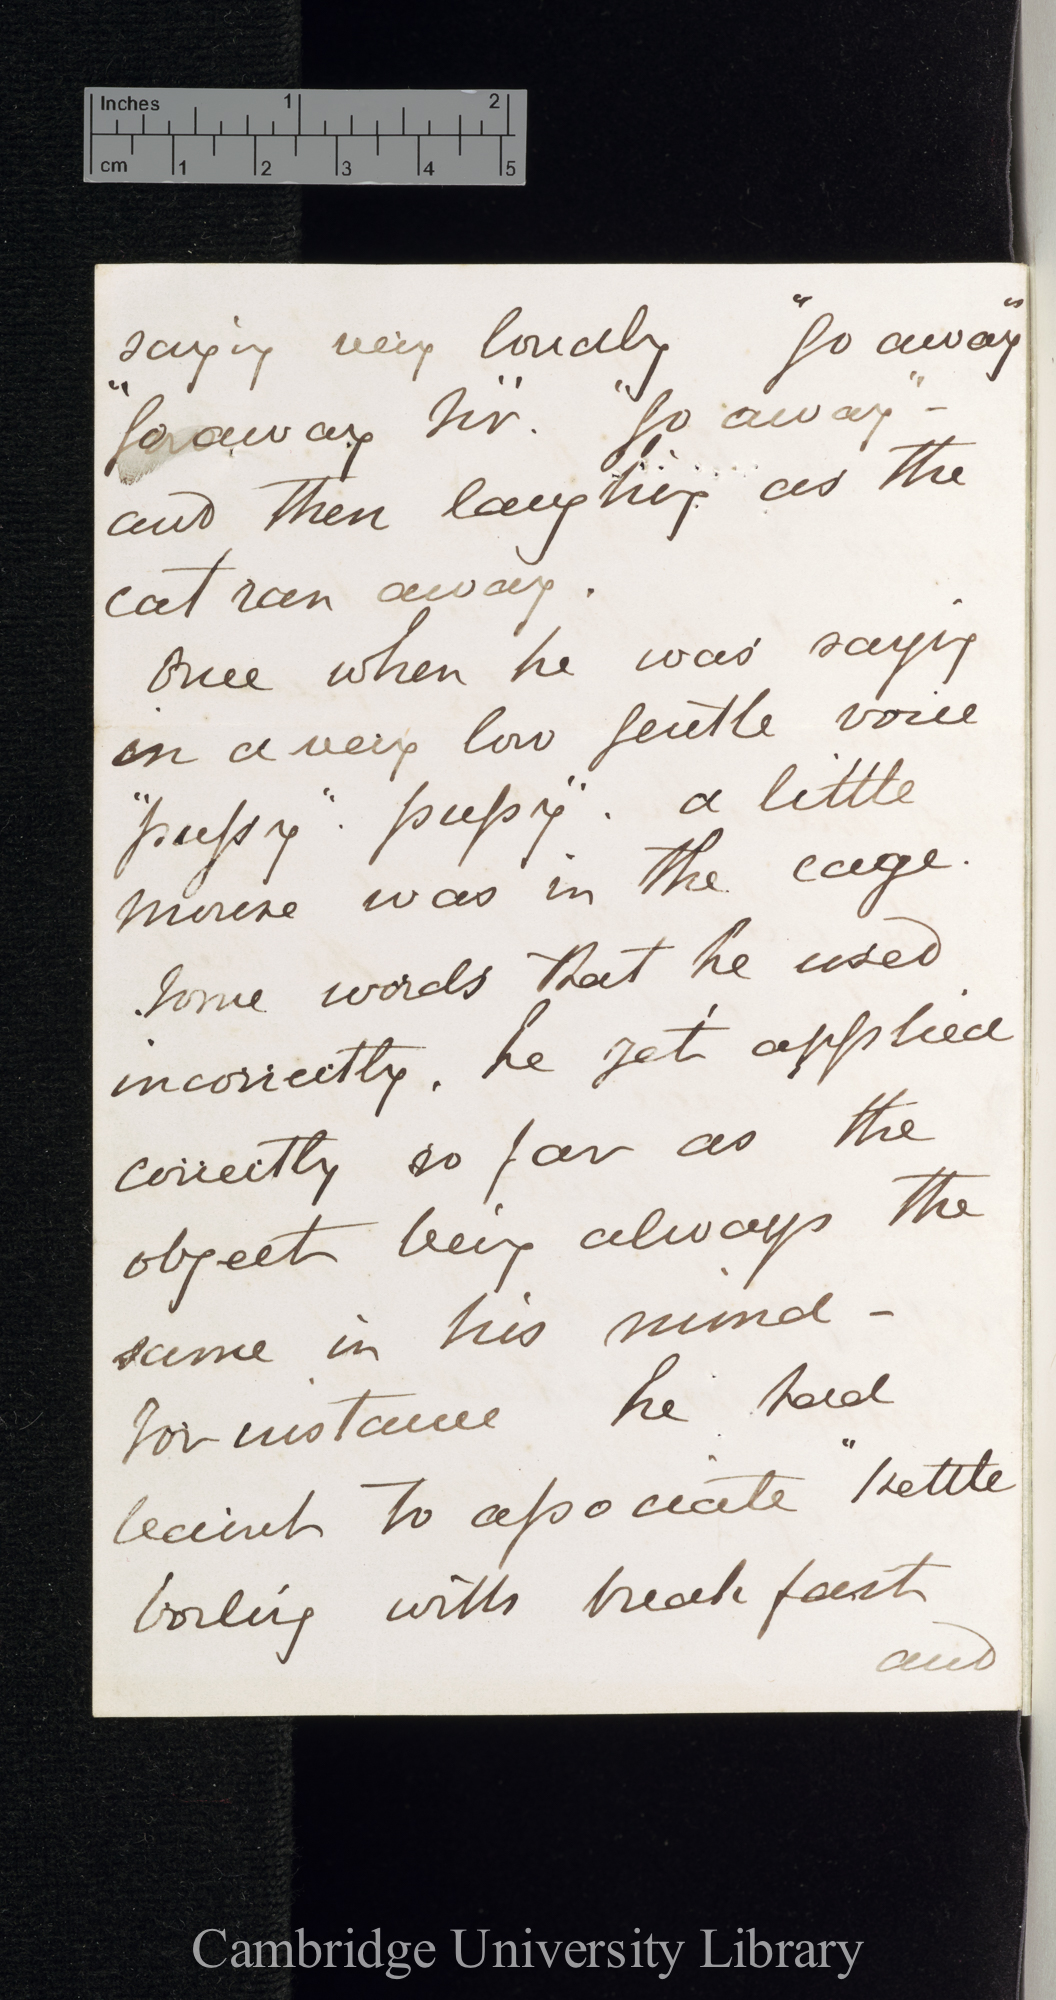 Inches 1 2
cm 1 2 3 4 5
saying very loudly "go away"
"go away sir". "go away" -
and then laughing as the
cat ran away.
Once when he was saying
in a very low gentle voice
"pussy". pussy". a little
mouse was in the cage.
Some words that he used
incorrectly, he yet applied
correctly so far as the
object being always the
same in his mind -
For instance he had
learnt to associate "Kettle
boiling with breakfast
and
Cambridge University Library